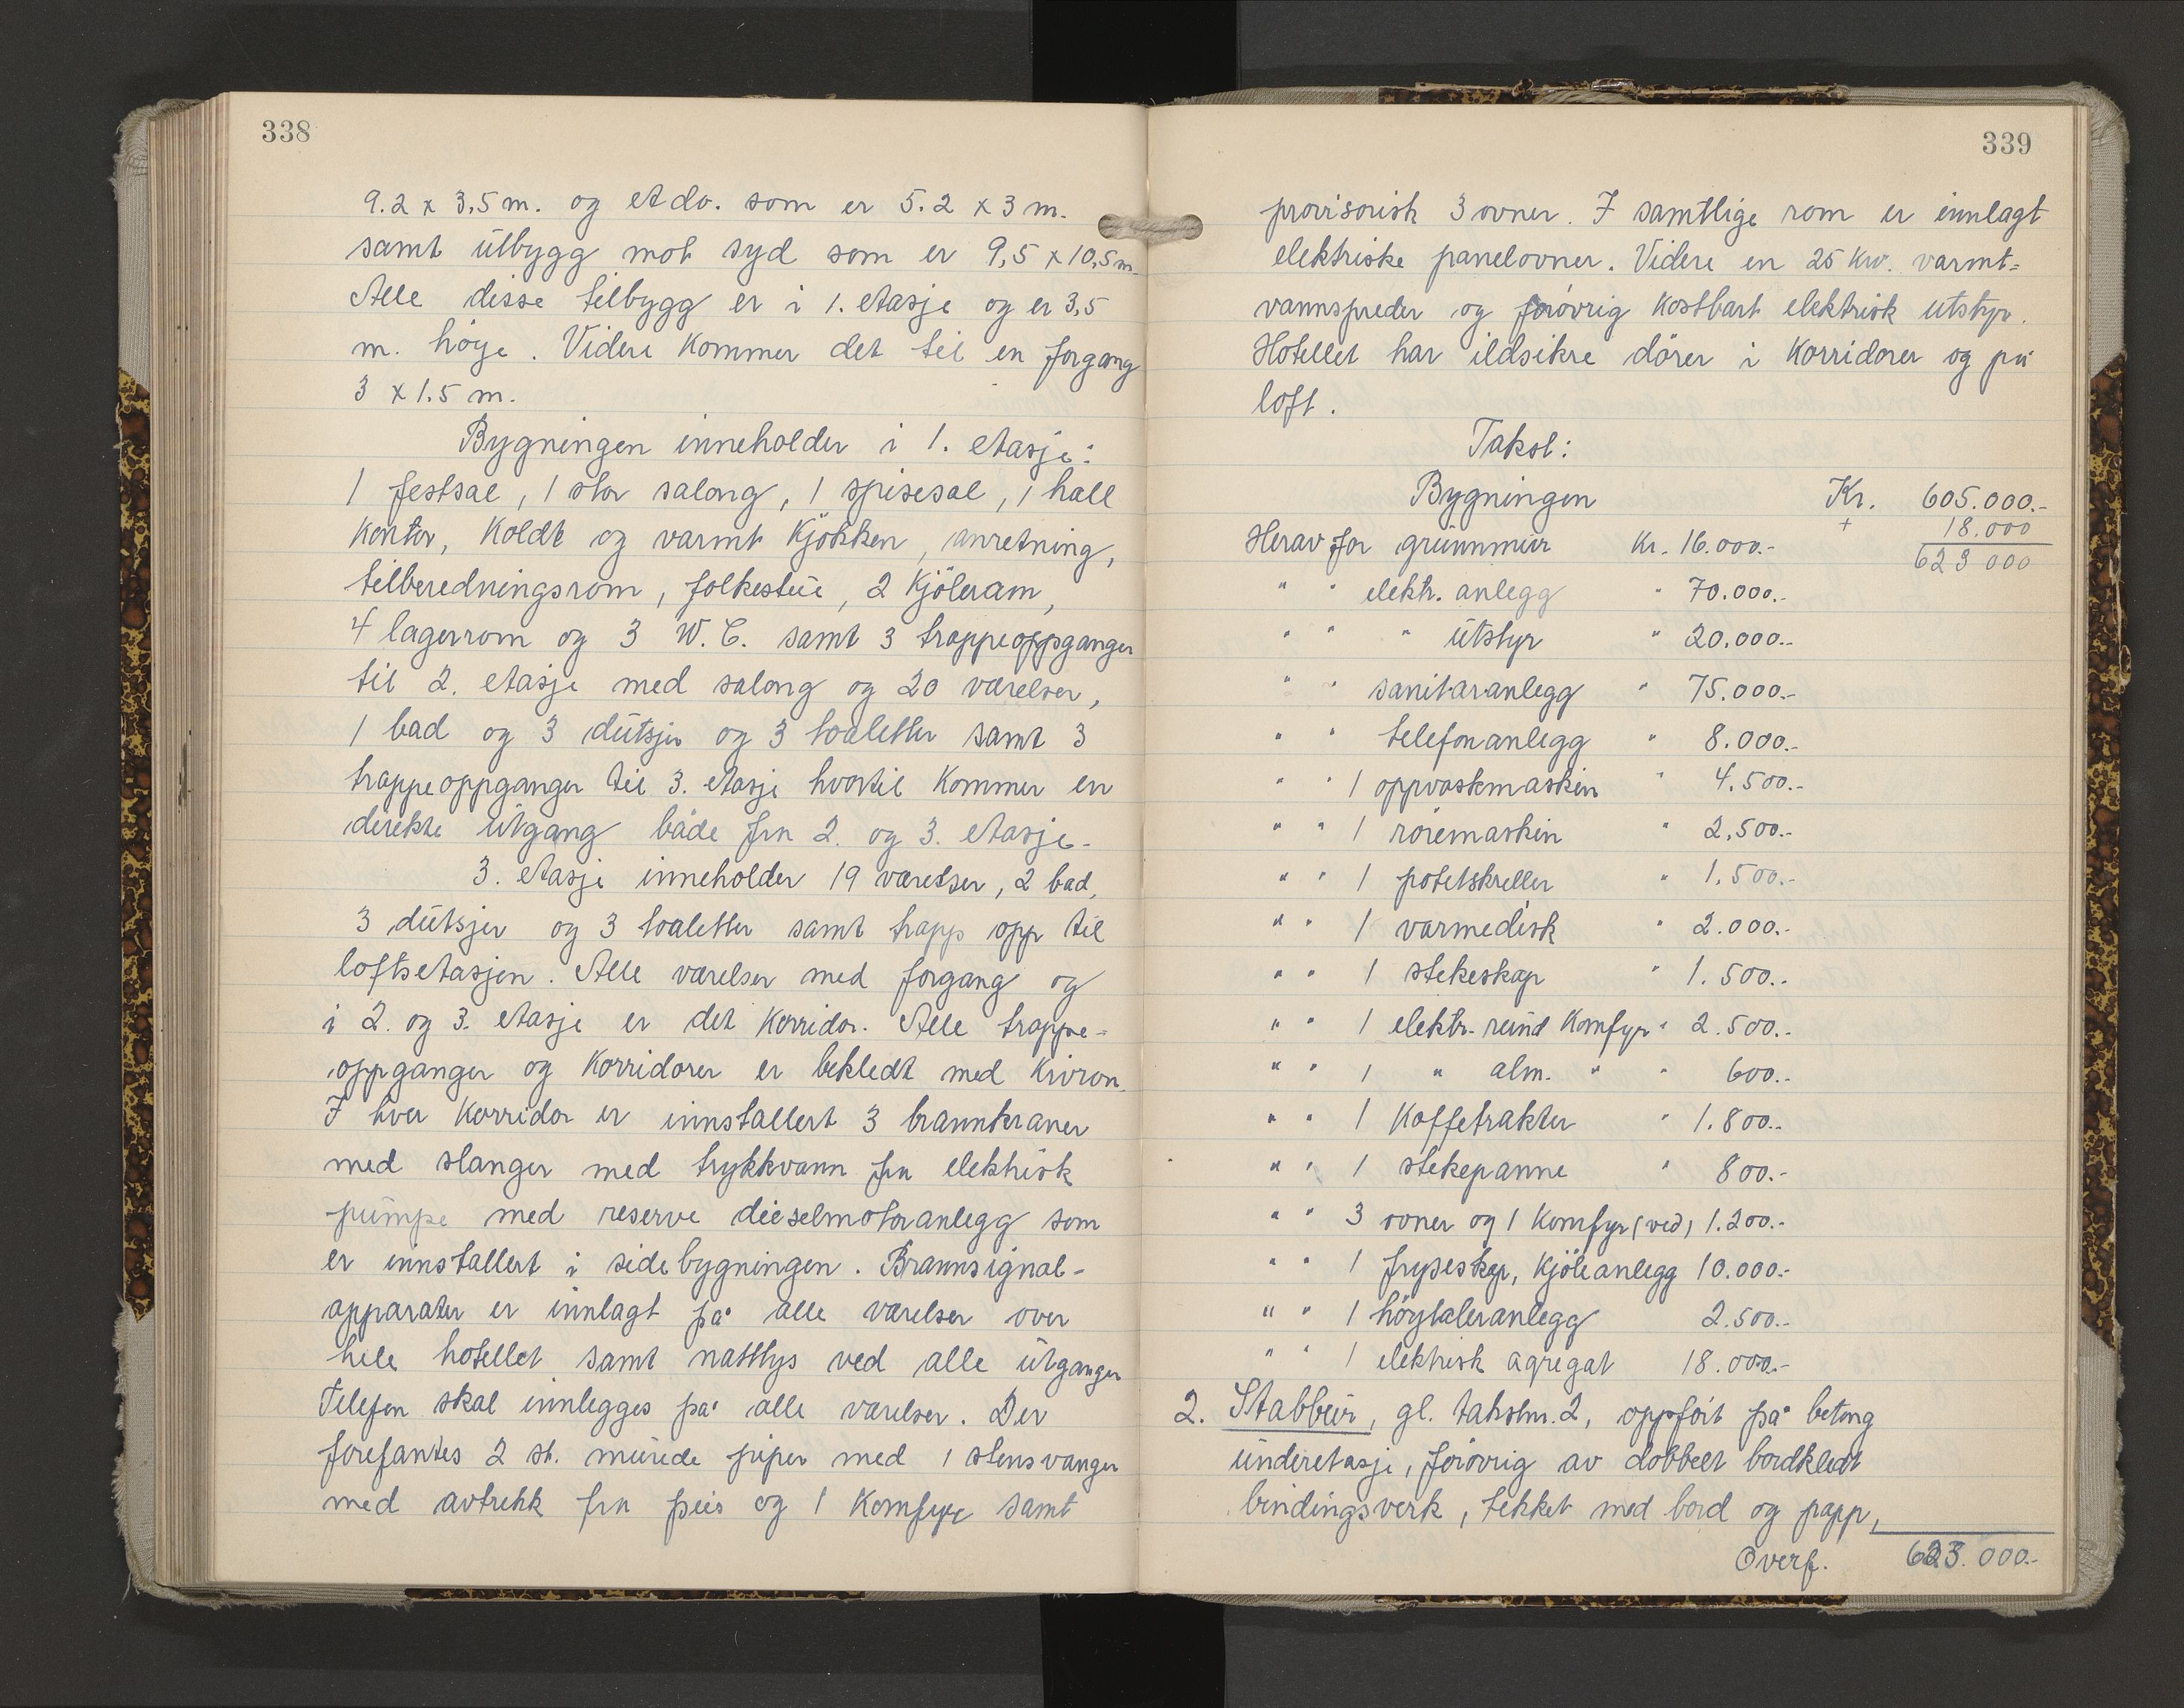 338
9.2 x 3,5 m. og et do. som er 5.2 x 3 m.
samt utbygg mot syd som er 9,5 x 10,5 m.
Alle disse tilbygg er i 1. etasje og er 3,5
m. høye. Videre kommer det til en forgang
3 x 1.5 m.
Bygningen inneholder i 1. etasje:
1 festsal, 1 stor salong, 1 spisesal, 1 hall
kontor, koldt og varmt kjökken, anretning,
tilberedningsrom, folkestue, 2 kjölerom,
4 lagerrom og 3 W.C. samt 3 trappeoppganger
til 2. etasje med salong og 20 værelser,
1 bad og 3 dutsjer og 3 toaletter samt 3
trappeoppganger til 3. etasje hvortil kommer en
direkte utgang både fra 2. og 3. etasje.
3. etasje inneholder 19 værelser, 2 bad,
3 dutsjer og 3 toaletter samt trapp opp til
loftsetasjen. Alle værelser med forgang og
i 2. og 3. etasje er det korridor. Alle trappe-
oppganger og korridorer er bekledt med Kivron.
I hver korridor er innstallert 3 brannkraner
med slanger med trykkvann fra elektrisk
pumpe med reserve dieselmotoranlegg som
er innstallert i sidebygningen. Brannsignal-
apparater er innlagt på alle værelser over
hele hotellet samt nattlys ved alle utganger
Telefon skal innlegges på alle værelser. Der
forefantes 2 st. murede piper med 1 stensvanger
med avtrekk fra peis og 1 komfyr samt
339
provisorisk 3 ovner. I samtlige rom er innlagt
elektriske panelovner. Videre en 25 kw. varmt=
vannspreder og forövrig kostbart elektrisk utstyr.
Hotellet har ildsikre dörer i korridorer og på
loft.
Takst:
Bygningen Kr. 605.000.-
+ 18.000
Herav for grunnmur Kr. 16.000.- 623 000
" " elektr. anlegg " 70.000.-
" " " utstyr " 20.000.-
" " sanitæranlegg " 75.000.-
" " telefonanlegg " 8.000.-
" " 1 oppvaskmaskin " 4.500.-
" " 1 röremaskin " 2,500.-
" " 1 potetskreller " 1,500.-
" " 1 varmedisk " 2.000.-
" " 1 stekeskap " 1.500.-
" " 1 elektr. rund komfyr " 2.500.-
" " 1 " alm. " " 600.-
" " 1 Kaffetrakter " 1.800.-
" " 1 stekepanne " 800.-
" " 3 ovner og 1 komfyr (ved) 1.200.-
" " 1 fryseskap, kjöleanlegg 10.000.-
" " 1 höytaleranlegg 2.500.-
" " 1 elektrisk agregat 18.000.-
2. Stabbur, gl. takstnr. 2, oppfört på betong
underetasje, forövrig av dobbelt bordkledt
bindingsverk, tekket med bord og papp,
Overf. 623.000.-